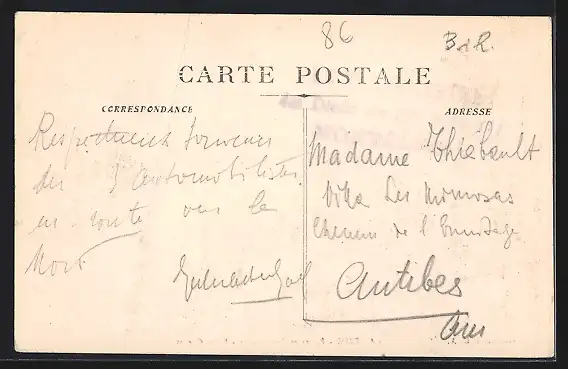 86
B & R.
CARTE POSTALE
CORRESPONDANCE
ADRESSE
Respectueux souvenir
des 3 Automobilistes
en route vers le
Nord
Madame Thiebault
Villa Les Mimosas
Chemin de l'Ermitage
Antibes